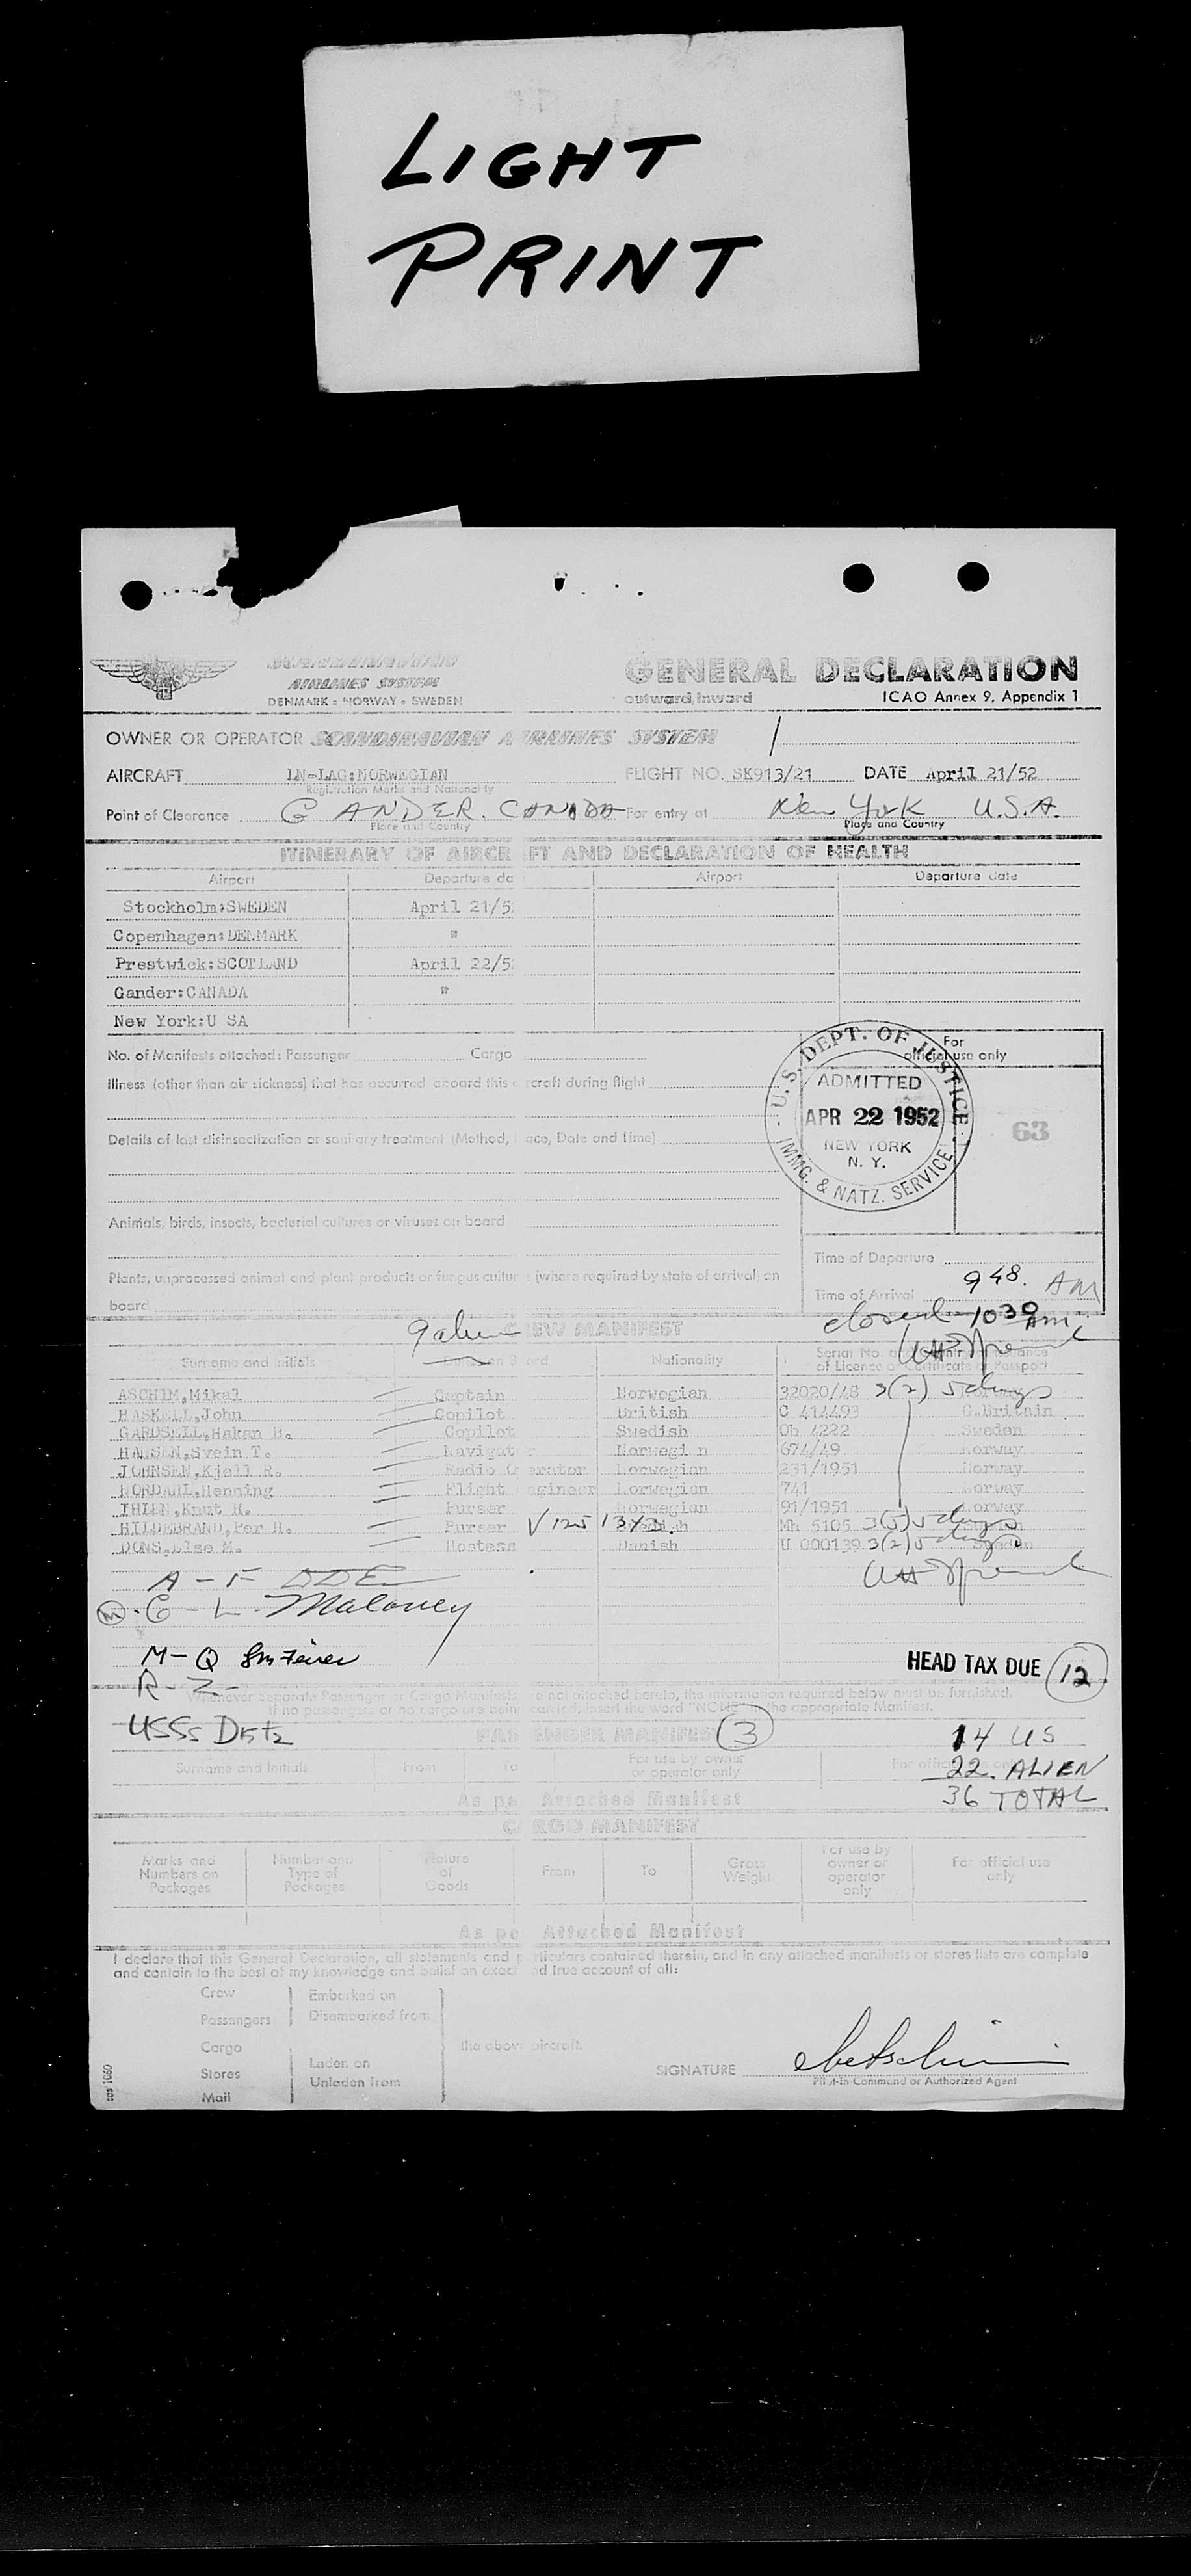 LIGHT
PRINT
SCANDINAVIAN
AIRLINES SYSTEM
DENMARK - NORWAY - SWEDEN
GENERAL DECLARATION
outward/inward
ICAO Annex 9, Appendix 1
OWNER OR OPERATOR SCANDINAVIAN AIRLINES SYSTEM
AIRCRAFT LN-LAG:NORWEGIAN FLIGHT NO. SK913/21 DATE April 21/52
Registration Marks and Nationality
Point of Clearance GANDER. CANADA For entry at New York U.S.A.
Place and Country Place and Country
ITINERARY OF AIRCR FT AND DECLARATION OF HEALTH
Airport Departure da Airport Departure date
Stockholm:SWEDEN April 21/5
Copenhagen:DENMARK "
Prestwick:SCOTLAND April 22/5
Gander:CANADA "
New York:U SA
No. of Manifests attached: Passenger Cargo
For
official use only
Illness (other than air sickness) that has occurred aboard this rcraft during flight
U. S. DEPT. OF JUSTICE
ADMITTED
APR 22 1952
NEW YORK
N. Y.
IMMG. & NATZ. SERVICE
63
Details of last disinsectization or sanitary treatment (Method, ace, Date and time)
Animals, birds, insects, bacterial cultures or viruses on board
Plants, unprocessed animal and plant products or fungus cultur s (where required by state of arrival) on
board
Time of Departure
Time of Arrival 948. AM
closed 1030 AM
EW MANIFEST
Surname and initials on B ard Nationality
ASCHIM,Mikal Captain Norwegian 32020/48 3(2) 5 days Norway
HASKELL,John Copilot British C 414493 G.Britain
GARDSELL,Hakan B. Copilot Swedish Ob 4222 Sweden
HANSEN,Svein T. Navigat r Norwegi n 674/49 Norway
JOHNSEN,Kjell R. Radio O erator Norwegian 231/1951 Norway
NORDAHL,Henning Flight ngineer Norwegian 741 Norway
THIEN,Knut H. Purser Norwegian 91/1951 Norway
HILDEBRAND,Per H. Purser Swedish Mh 5105 3(5) 5 days
DONS,Else M. Hostess Danish U 000139 3(2) 5 days Sweden
A - F DDE
C - L - Maloney
M - Q
R - Z -
HEAD TAX DUE 12
Whenever separate Passenger or Cargo Manifests re not attached hereto, the information required below must be furnished.
If no passengers or no cargo are being carried, insert the word "NONE" the appropriate Manifest.
USSS Dietz
PAS ENGER MANIFEST 3
14 US
Surname and Initials From To For use by owner or operator only
22. ALIEN
As pe Attached Manifest
36 TOTAL
C RGO MANIFEST
Marks and Numbers on Packages Number and Type of Packages Nature of Goods From To Gross Weight For use by owner or operator only For official use only
As pe Attached Manifest
I declare that this General Declaration, all statements and p rticulars contained therein, and in any attached manifests or stores lists are complete
and contain to the best of my knowledge and belief an exact nd true account of all:
Crew Embarked on
Passengers Disembarked from
Cargo the above aircraft.
Stores Laden on
Mail Unladen from
SIGNATURE
Pilot-in-Command or Authorized Agent
sas 1060